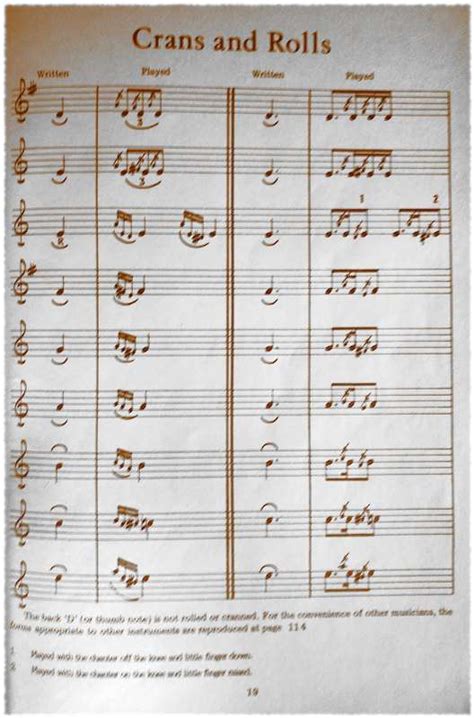 Crans and Rolls
Written Played Written Played
3
3
1 2
R
The back 'D' (or thumb note) is not rolled or cranned. For the convenience of other musicians, the
forms appropriate to other instruments are reproduced at page 114
1 Played with the chanter off the knee and little finger down.
2 Played with the chanter on the knee and little finger raised.
19